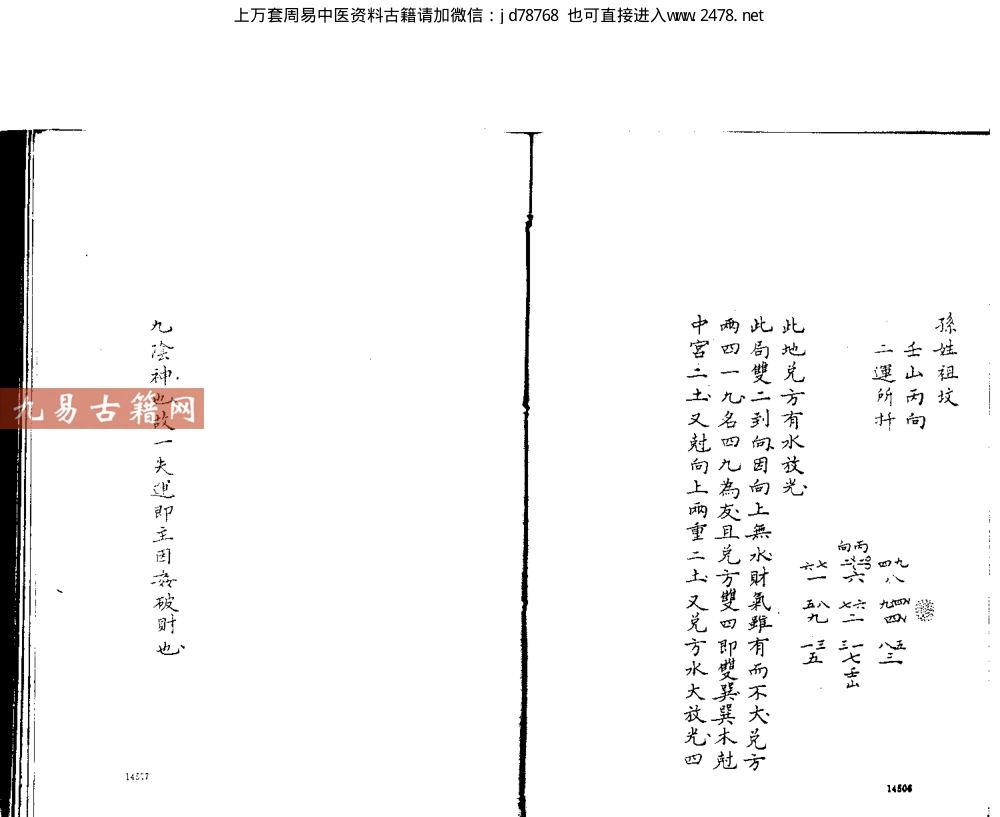 上万套周易中医资料古籍请加微信：jd78768 也可直接进入www.2478.net
孫姓祖坟
壬山丙向
二運所扦
此地兑方有水放光
此局雙二到向因向上無水財氣雖有而不大兑方
兩四一九名四九為友且兑方雙四即雙巽巽木尅
中宫二土又尅向上兩重二土又兑方水大放光四
丙向
六七 一
二二 六
四九 八
五八 九
七六 二
九四 四
一三 五
三一 七
八五 三
壬山
14506
九陰神也故一失運即主因姦破財也
九易古籍网
14507